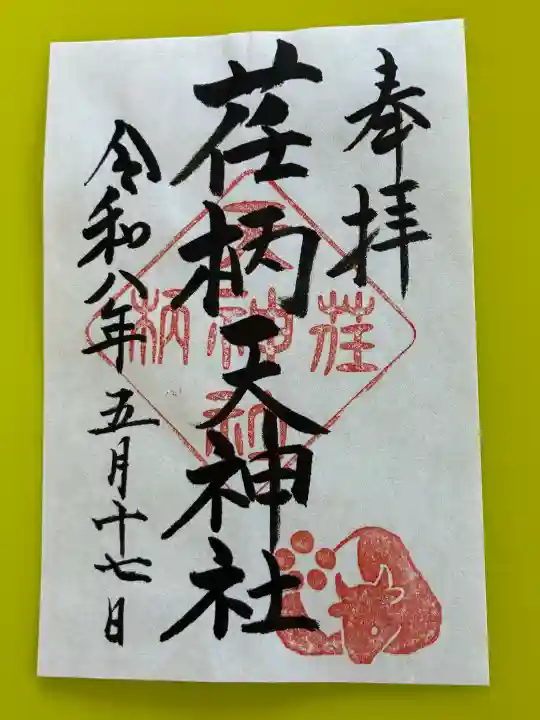 奉拝
荏柄天神社
令和八年五月十七日
荏
天神社
柄